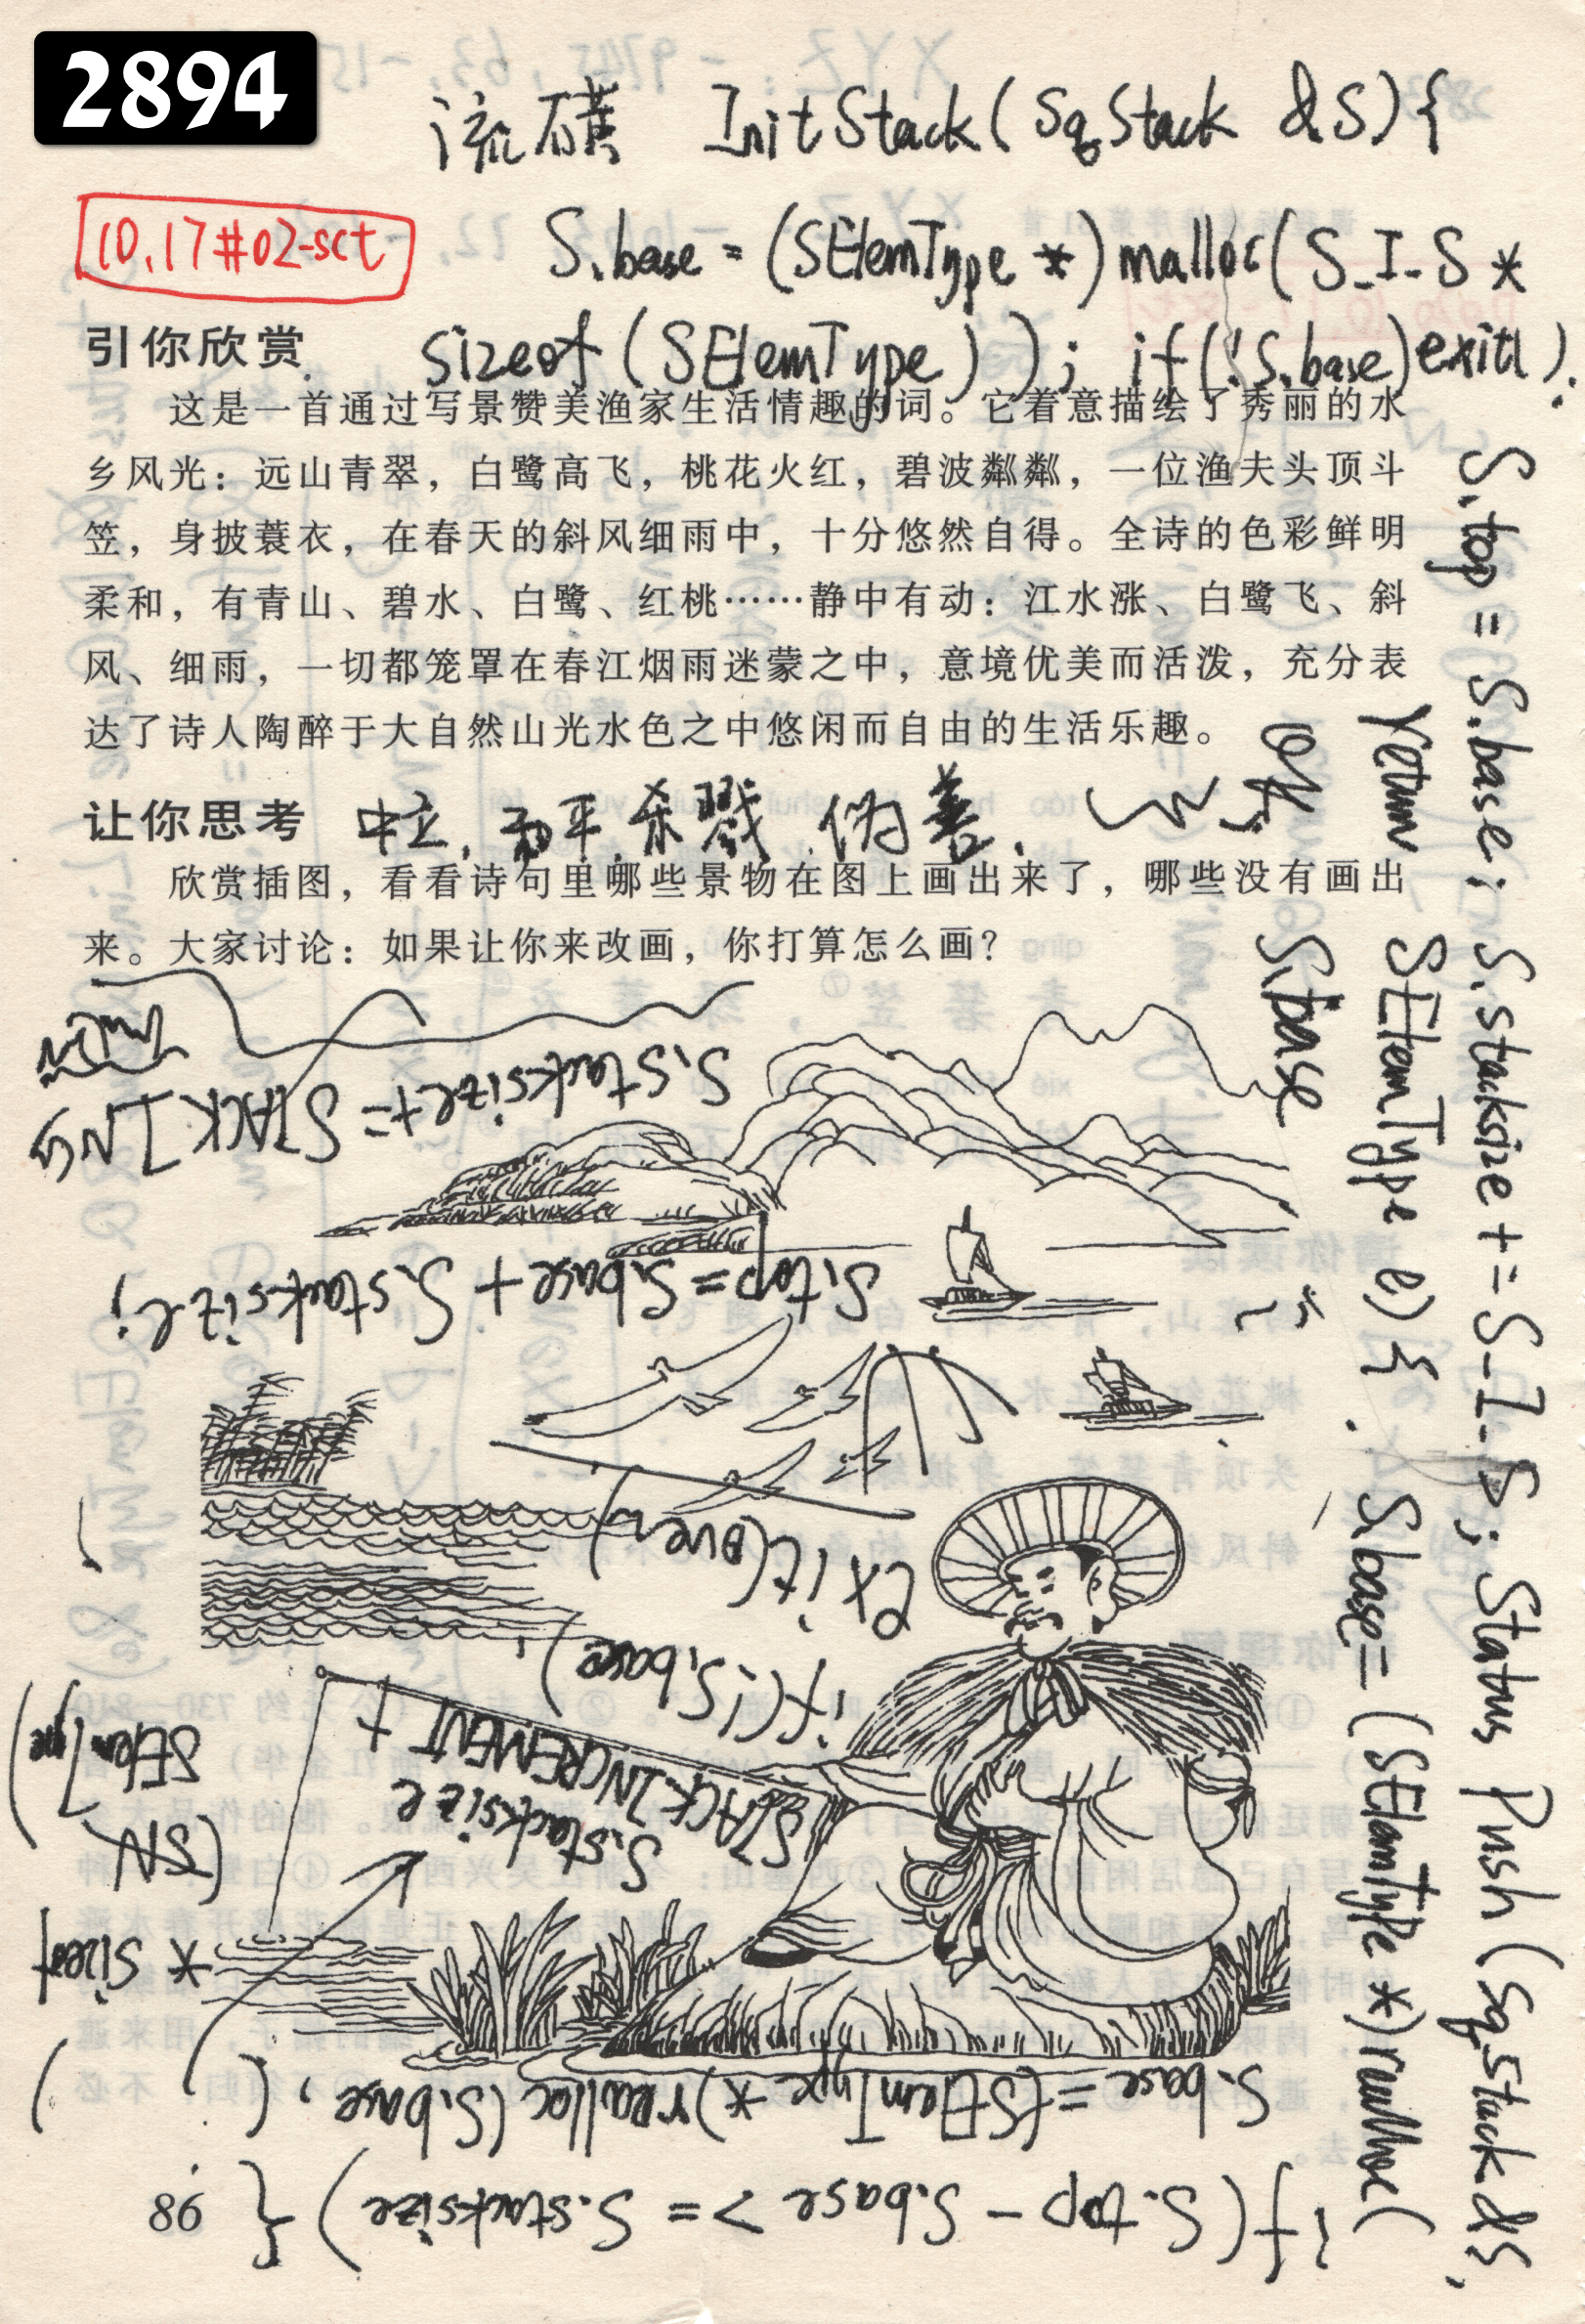 2894
流磺 InitStack(SqStack &S){
10.17#02-sct
S.base = (SElemType *)malloc(S_I_S *
sizeof(SElemType)); if(!S.base)exit().
引你欣赏
这是一首通过写景赞美渔家生活情趣的词。它着意描绘了秀丽的水
乡风光：远山青翠，白鹭高飞，桃花火红，碧波粼粼，一位渔夫头顶斗
笠，身披蓑衣，在春天的斜风细雨中，十分悠然自得。全诗的色彩鲜明
柔和，有青山、碧水、白鹭、红桃……静中有动：江水涨、白鹭飞、斜
风、细雨，一切都笼罩在春江烟雨迷蒙之中，意境优美而活泼，充分表
达了诗人陶醉于大自然山光水色之中悠闲而自由的生活乐趣。
让你思考
中立，和平，杀戮，伪善．
欣赏插图，看看诗句里哪些景物在图上画出来了，哪些没有画出
来。大家讨论：如果让你来改画，你打算怎么画？
S.top = S.base; S.stacksize += S_I_S; Status Push(SqStack &S,
SElemType e){ . S.base = (SElemType *)realloc(
S.base
if(S.top - S.base >= S.stacksize){
S.base = (SElemType *)realloc(S.base, (
S.stacksize
+ STACKINCREMENT
* sizeof
SElemType)
if(!S.base)
exit(over)
S.top = S.base + S.stacksize;
S.stacksize +=
86